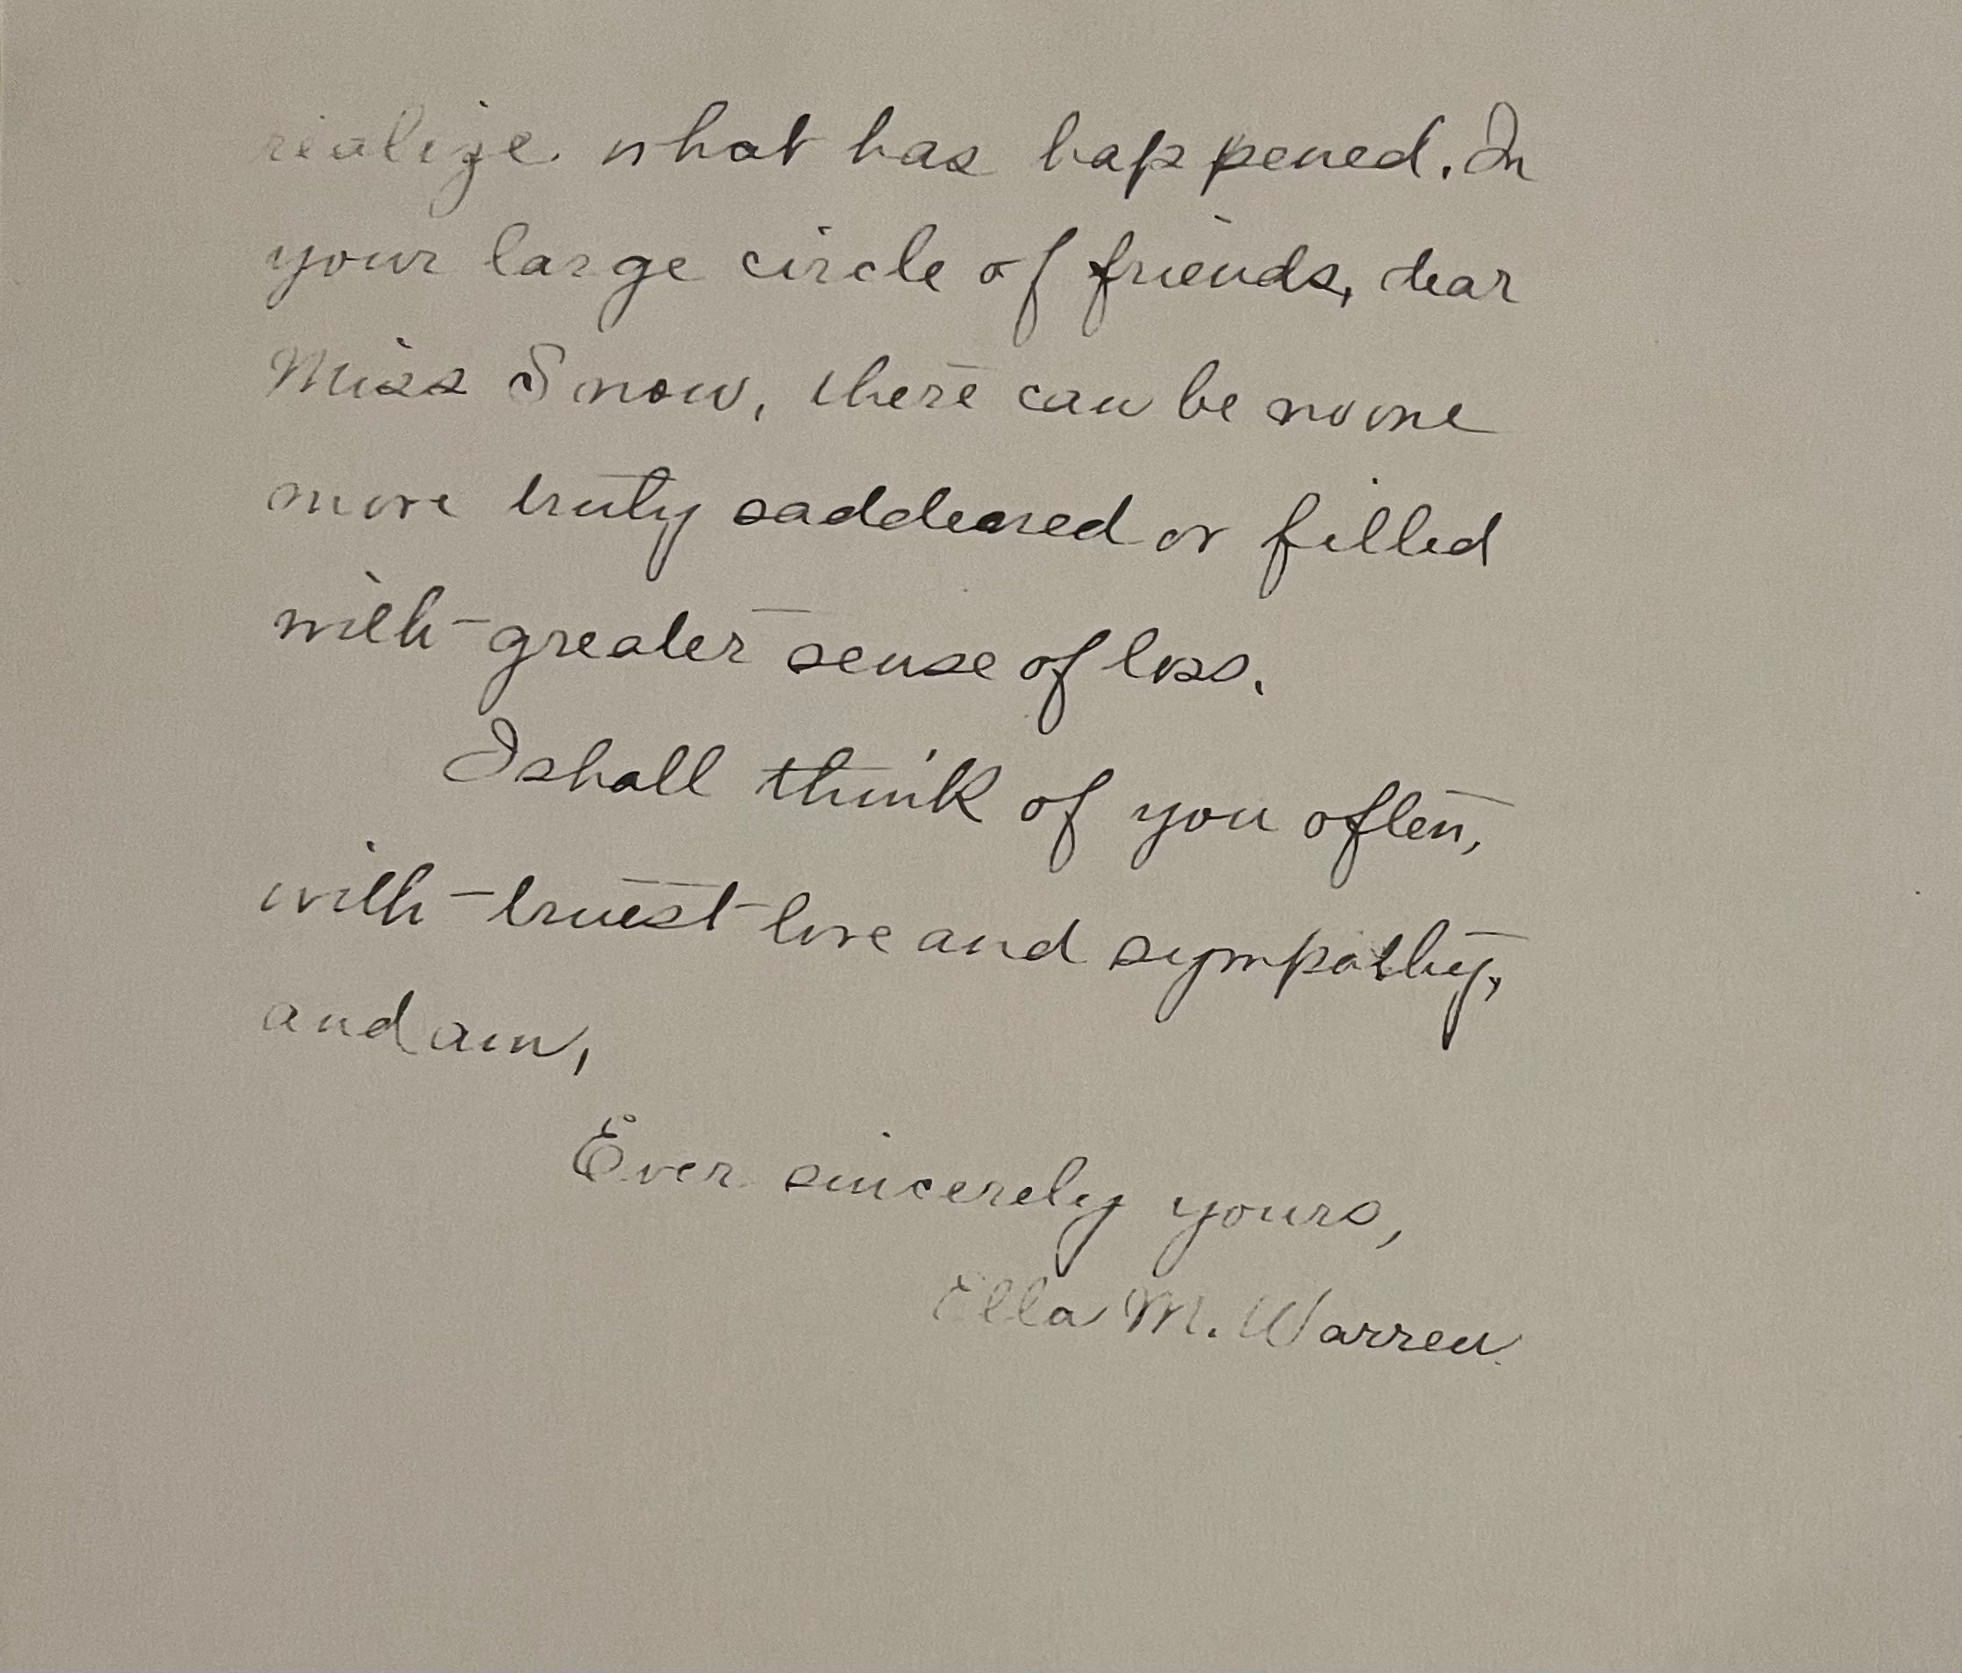 realize what has happened. In
your large circle of friends, dear
Miss Snow, there can be no one
more truly saddened or filled
with greater sense of loss.
I shall think of you often,
with truest love and sympathy,
and am,
Ever sincerely yours,
Ella M. Warren